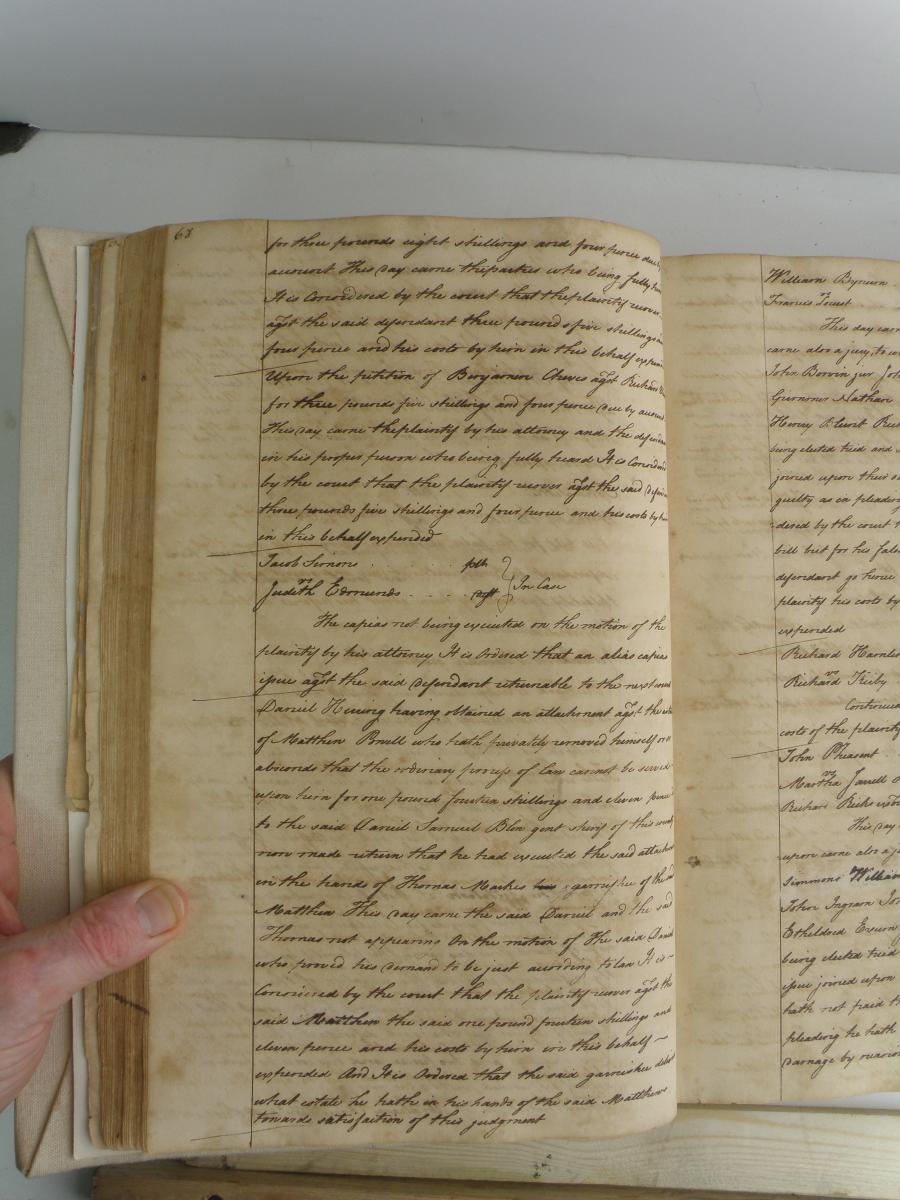 68
for three pounds eight shillings and four pence due by
account This day came the parties who being fully
It is Considered by the court that the plaintif recover
agst the said defendant three pounds five shillings
four pence and his costs by him in this behalf
Upon the petition of Benjamin Cheves agst Richard
for three pounds five shillings and four pence due by
This day came the plaintif by his attorney and the
in his proper person who being fully heard It is
by the court that the plaintif recover agst the said
three pounds five shillings and four pence and his costs by
in this behalf expended
Jacob Simons . . . . pltf
vs In Case
Judith Edmunds . . . deft
The capias not being executed on the motion of the
plaintif by his attorney It is Ordered that an alias capias
issue agst the said defendant returnable to the next
Daniel Herring having obtained an attachment agst the
of Matthew Powell who hath privately removed himself or
absconds that the ordinary process of law cannot be served
upon him for one pound fourteen shillings and eleven pence
to the said Daniel Samuel Blow gent sherif of this county
now made return that he had executed the said
in the hands of Thomas Markes garnishee of the
Matthew This day came the said Daniel and the said
Thomas not appearing On the motion of The said Daniel
who proved his demand to be just according to law It is
Considered by the court that the plaintif recover agst the
said Matthew the said one pound fourteen shillings and
eleven pence and his costs by him in this behalf
expended And It is Ordered that the said garnishee
what estate he hath in his hands of the said Matthews
towards satisfaction of this judgment
William Bynum
vs
Francis
This day
came also a jury, to
John jur
Nathan
Henry Blunt
being elected tried and
joined upon their
guilty as in
by the court
bill but for his
defendant go hence
plaintif his costs by
expended
Richard
vs
Richard Kirby
costs of the plaintif
John Pheasent
vs
Martha Jarrell
Richard Ricks
This day
upon came also a
Simmons William
John Ingram
Etheldred Exum
being elected tried
issue joined upon
hath not paid
pleading he hath
damage by